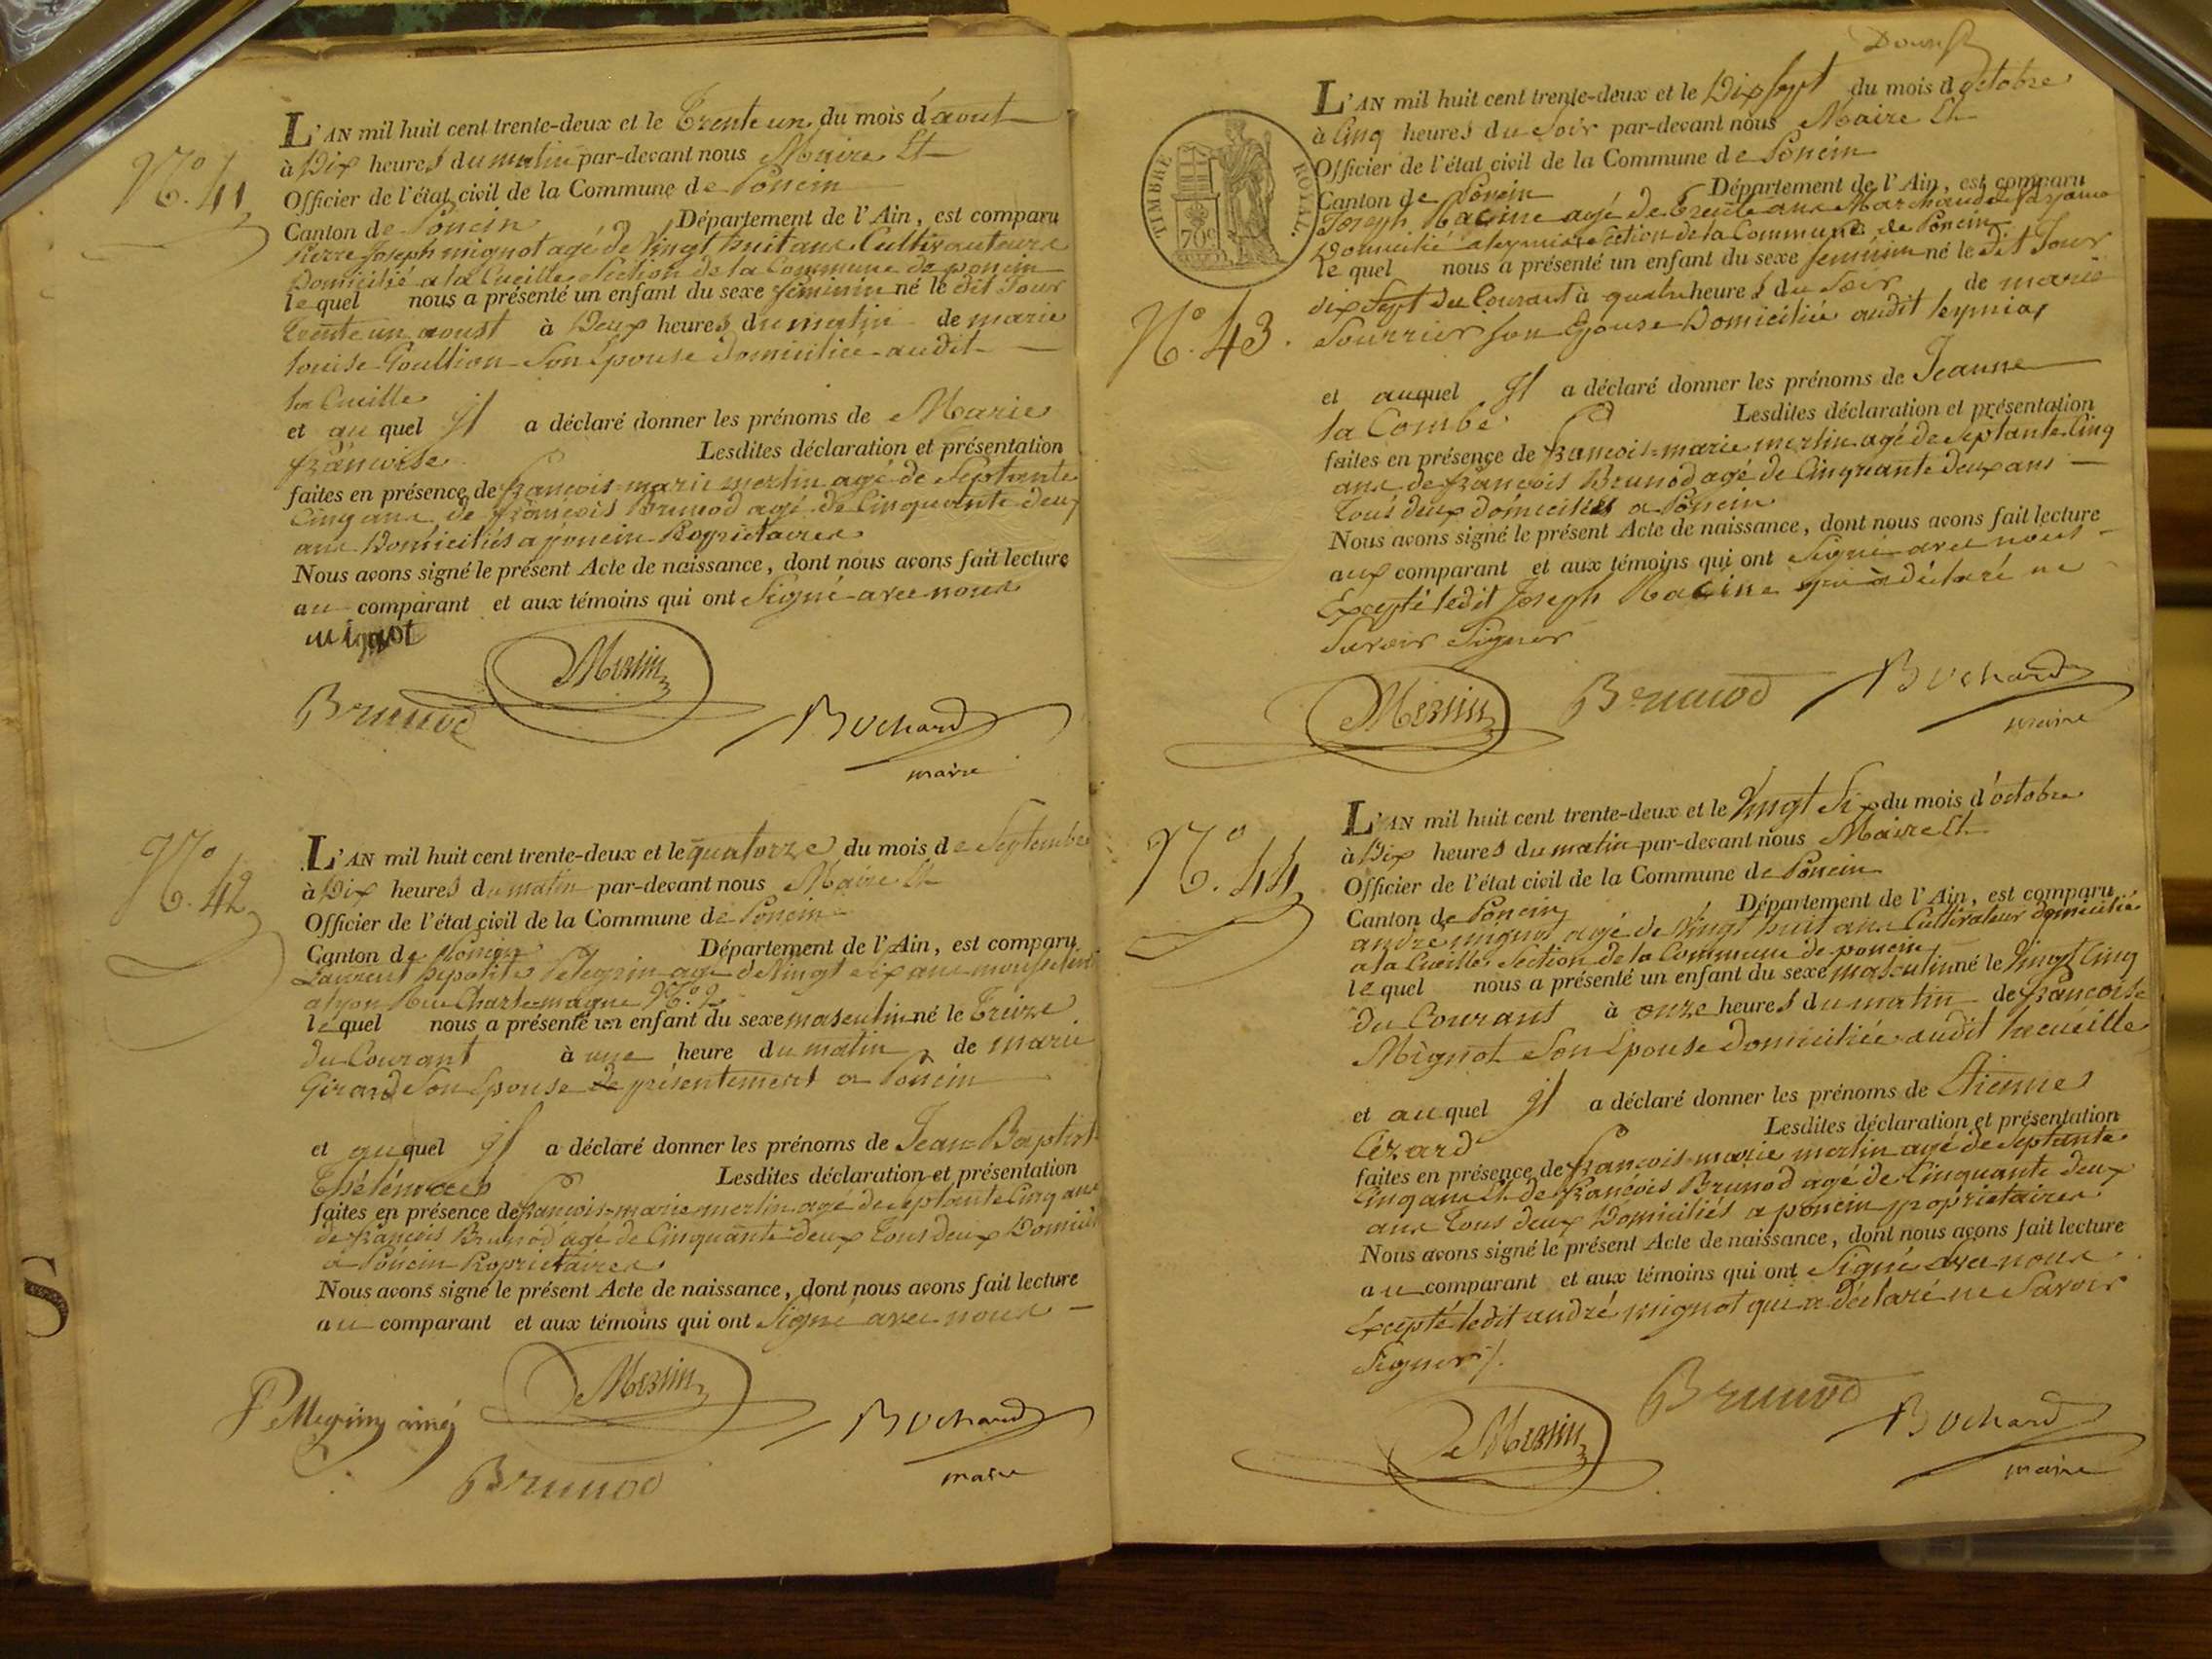 N.° 41
L'AN mil huit cent trente-deux et le Trente un du mois d'aout
à Dix heures du matin par-devant nous Maire Et
Officier de l'état civil de la Commune de Poncin
Canton de Poncin Département de l'Ain, est comparu
Pierre Joseph mignot agé de Vingt huit ans Cultivateur
Domicilié a la Cueille Section de la Commune de poncin
lequel nous a présenté un enfant du sexe féminin né le dit Jour
trente un aoust à Deux heures du matin de marie
louise Goullion Son Epouse domiciliée audit
la Cueille
et au quel il a déclaré donner les prénoms de Marie
françoise Lesdites déclaration et présentation
faites en présence de françois-marie merlin agé de Septante
Cinq ans de françois Brunod agé de Cinquante deux
ans Domiciliés a poncin Propriétaires
Nous avons signé le présent Acte de naissance, dont nous avons fait lecture
au comparant et aux témoins qui ont Signé avec nous
mignot
Merlin
Brunod
Bochard
maire
N.° 42
L'AN mil huit cent trente-deux et le quatorze du mois de Septembre
à Dix heures du matin par-devant nous Maire Et
Officier de l'état civil de la Commune de Poncin
Canton de Poncin Département de l'Ain, est comparu
Laurent hipolite Pelegrin agé de Vingt six ans
a lyon Rue Charlemagne N.° 9
lequel nous a présenté un enfant du sexe masculin né le Treize
du Courant à une heure du matin de marie
Girard Son Epouse de présentement a Poncin
et au quel il a déclaré donner les prénoms de Jean-Baptist
Thélémaco Lesdites déclaration et présentation
faites en présence de françois-marie merlin agé de septante Cinq ans
de françois Brunod agé de Cinquante deux Tous deux Domiciliés
a Poncin Propriétaires
Nous avons signé le présent Acte de naissance, dont nous avons fait lecture
au comparant et aux témoins qui ont Signé avec nous
Pellegrin ainé
Merlin
Bochard
maire
Brunod
TIMBRE ROYAL.
70c
N.° 43.
L'AN mil huit cent trente-deux et le Dix sept du mois d octobre
à Cinq heures du Soir par-devant nous Maire Et
Officier de l'état civil de la Commune de Poncin
Canton de Poncin Département de l'Ain, est comparu
Joseph Racine agé de Trente ans Marchand
Domicilié a leymiat Section de la Commune de Poncin
le quel nous a présenté un enfant du sexe féminin né le dit Jour
dix Sept du Courant à quatre heures du Soir de marie
Sourrier son Epouse Domiciliée audit leymiat
et auquel il a déclaré donner les prénoms de Jeanne
la Combe Lesdites déclaration et présentation
faites en présence de françois-marie merlin agé de Septante Cinq
ans de françois Brunod agé de Cinquante deux ans
Tous deux domiciliés a Poncin
Nous avons signé le présent Acte de naissance, dont nous avons fait lecture
aux comparant et aux témoins qui ont Signé avec nous
Excepté ledit Joseph Racine qui a déclaré ne
Savoir Signer
Merlin
Brunod
Bochard
maire
N.° 44
L'AN mil huit cent trente-deux et le Vingt Six du mois d'octobre
à Dix heures du matin par-devant nous Maire Et
Officier de l'état civil de la Commune de Poncin
Canton de Poncin Département de l'Ain, est comparu
andré mignot agé de Vingt huit ans Cultivateur domicilié
a la Cueille Section de la Commune de poncin
lequel nous a présenté un enfant du sexe masculin né le Vingt Cinq
du Courant à onze heures du matin de françoise
Mignot Son Epouse domiciliée audit lacueille
et au quel il a déclaré donner les prénoms de Etienne
Cézard Lesdites déclaration et présentation
faites en présence de françois-marie merlin agé de Septante
Cinq ans Et de françois Brunod agé de Cinquante deux
ans Tous deux Domiciliés a poncin propriétaires
Nous avons signé le présent Acte de naissance, dont nous avons fait lecture
au comparant et aux témoins qui ont Signé avec nous
Excepté ledit andré mignot qui a déclaré ne Savoir
Signer
Merlin
Brunod
Bochard
maire
S